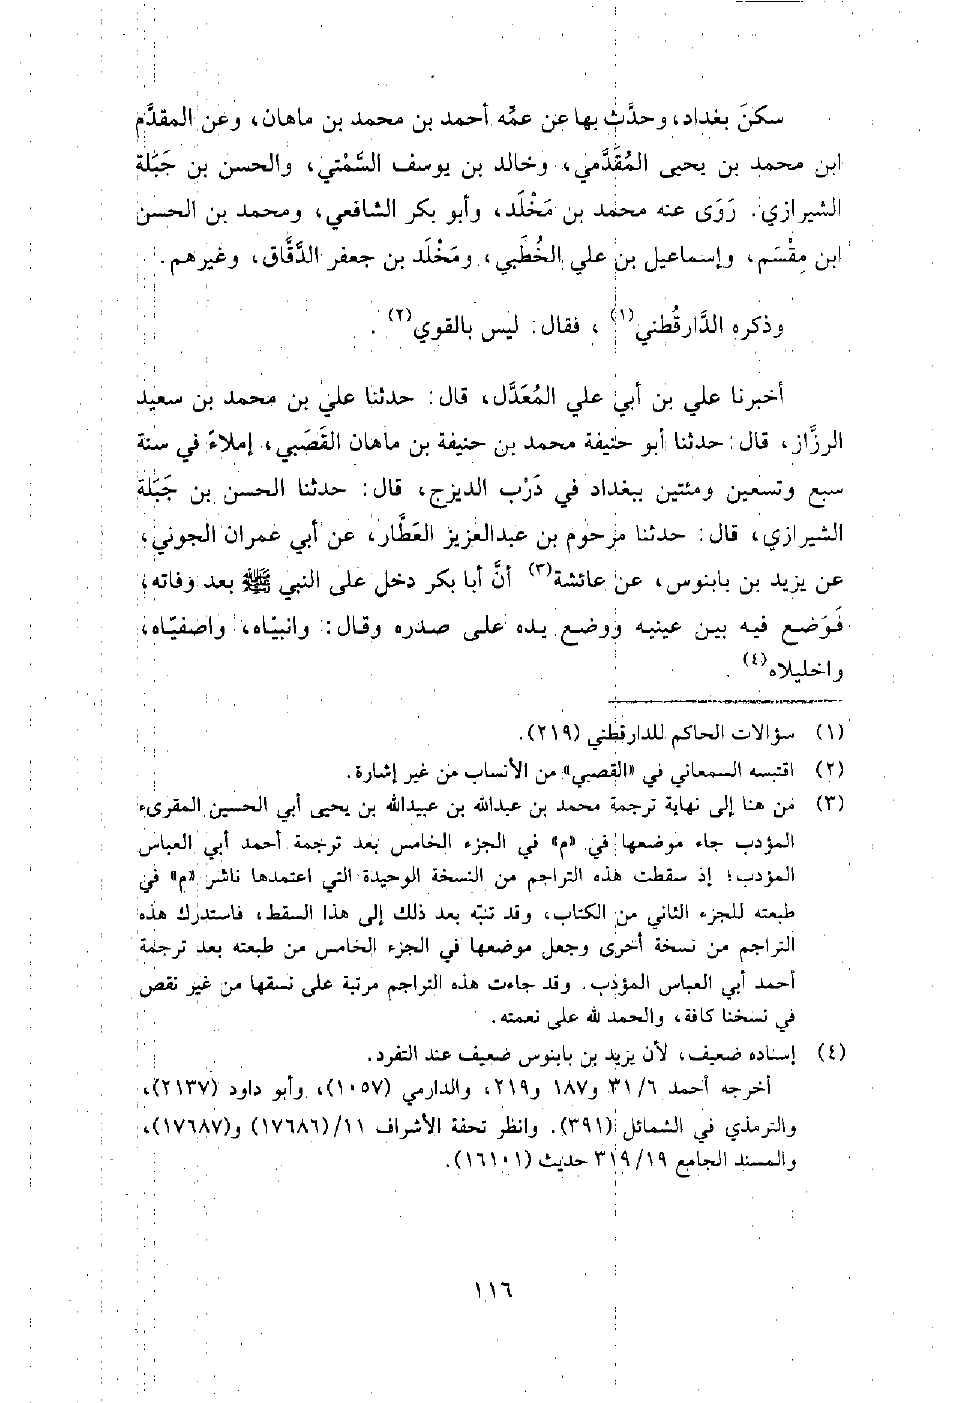 سكنَ بغداد، وحدَّث بها عن عمِّه أحمد بن محمد بن ماهان، وعن المقدَّم
ابن محمد بن يحيى المُقدَّمي، وخالد بن يوسف السَّمْتي، والحسن بن جَبَلة
الشيرازي. رَوَى عنه محمد بن مَخْلَد، وأبو بكر الشافعي، ومحمد بن الحسن
ابن مِقْسَم، وإسماعيل بن علي الخُطَبي، ومَخْلَد بن جعفر الدَّقَّاق، وغيرهم.
وذكره الدَّارقُطني(١)، فقال: ليس بالقوي(٢).
أخبرنا علي بن أبي علي المُعَدَّل، قال: حدثنا علي بن محمد بن سعيد
الرزَّاز، قال: حدثنا أبو حنيفة محمد بن حنيفة بن ماهان القَصَبي، إملاءً في سنة
سبع وتسعين ومئتين ببغداد في دَرْب الديزج، قال: حدثنا الحسن بن جَبَلة
الشيرازي، قال: حدثنا مرحوم بن عبدالعزيز العَطَّار، عن أبي عمران الجوني،
عن يزيد بن بابنوس، عن عائشة(٣) أنَّ أبا بكر دخل على النبي ﷺ بعد وفاته،
فَوَضع فيه بين عينيه ووضع يده على صدره وقال: وانبيّاه، واصفيّاه،
واخليلاه(٤).
(١) سؤالات الحاكم للدارقطني (٢١٩).
(٢) اقتبسه السمعاني في «القصبي» من الأنساب من غير إشارة.
(٣) من هنا إلى نهاية ترجمة محمد بن عبدالله بن عبيدالله بن يحيى أبي الحسين المقرىء
المؤدب جاء موضعها في «م» في الجزء الخامس بعد ترجمة أحمد أبي العباس
المؤدب؛ إذ سقطت هذه التراجم من النسخة الوحيدة التي اعتمدها ناشر «م» في
طبعته للجزء الثاني من الكتاب، وقد تنبّه بعد ذلك إلى هذا السقط، فاستدرك هذه
التراجم من نسخة أخرى وجعل موضعها في الجزء الخامس من طبعته بعد ترجمة
أحمد أبي العباس المؤدب. وقد جاءت هذه التراجم مرتبة على نسقها من غير نقص
في نسخنا كافة، والحمد لله على نعمته.
(٤) إسناده ضعيف، لأن يزيد بن بابنوس ضعيف عند التفرد.
أخرجه أحمد ٣١/٦ و١٨٧ و٢١٩، والدارمي (١٠٥٧)، وأبو داود (٢١٣٧)،
والترمذي في الشمائل (٣٩١). وانظر تحفة الأشراف ١١/(١٧٦٨٦) و(١٧٦٨٧)،
والمسند الجامع ٣١٩/١٩ حديث (١٦١٠١).
١١٦